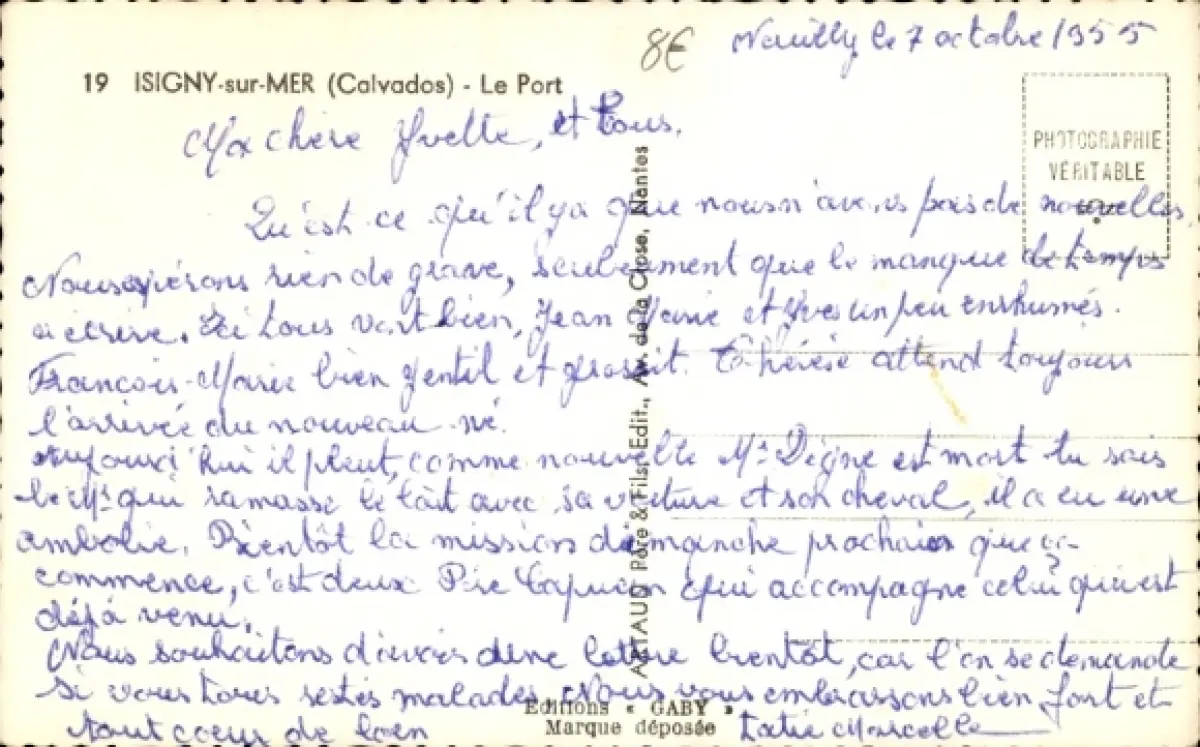 8€
Neuilly le 7 octobre 1955
19 ISIGNY-sur-MER (Calvados) - Le Port
Ma chère Yvette, et tous.
PHOTOGRAPHIE
VÉRITABLE
Qu'est ce qu'il y a que nous n'avons pas de nouvelles.
Nous espérons rien de grave, seulement que le manque de temps
à écrire. Ici tous vont bien, Jean Marie et Yves un peu enrhumés.
François-Marie bien gentil et grossit. Thérèse attend toujours
l'arrivée du nouveau-né.
Aujourd'hui il pleut, comme nouvelle Mr Dégne est mort tu sais
le Mr qui ramasse le lait avec sa voiture et son cheval, il a eu une
ambolie. Bientôt la mission dimanche prochain que ça
commence, c'est deux Père Capucin qui accompagne celui qui est
déjà venu.
Nous souhaitons d'avoir une lettre bientôt, car l'on se demande
si vous tous restés malades. Nous vous embrassons bien fort et
tout coeur de loin
Tatie Marcelle
ARTAUD Père & Fils Edit., Av. de la Close, Nantes
Editions « GABY »
Marque déposée